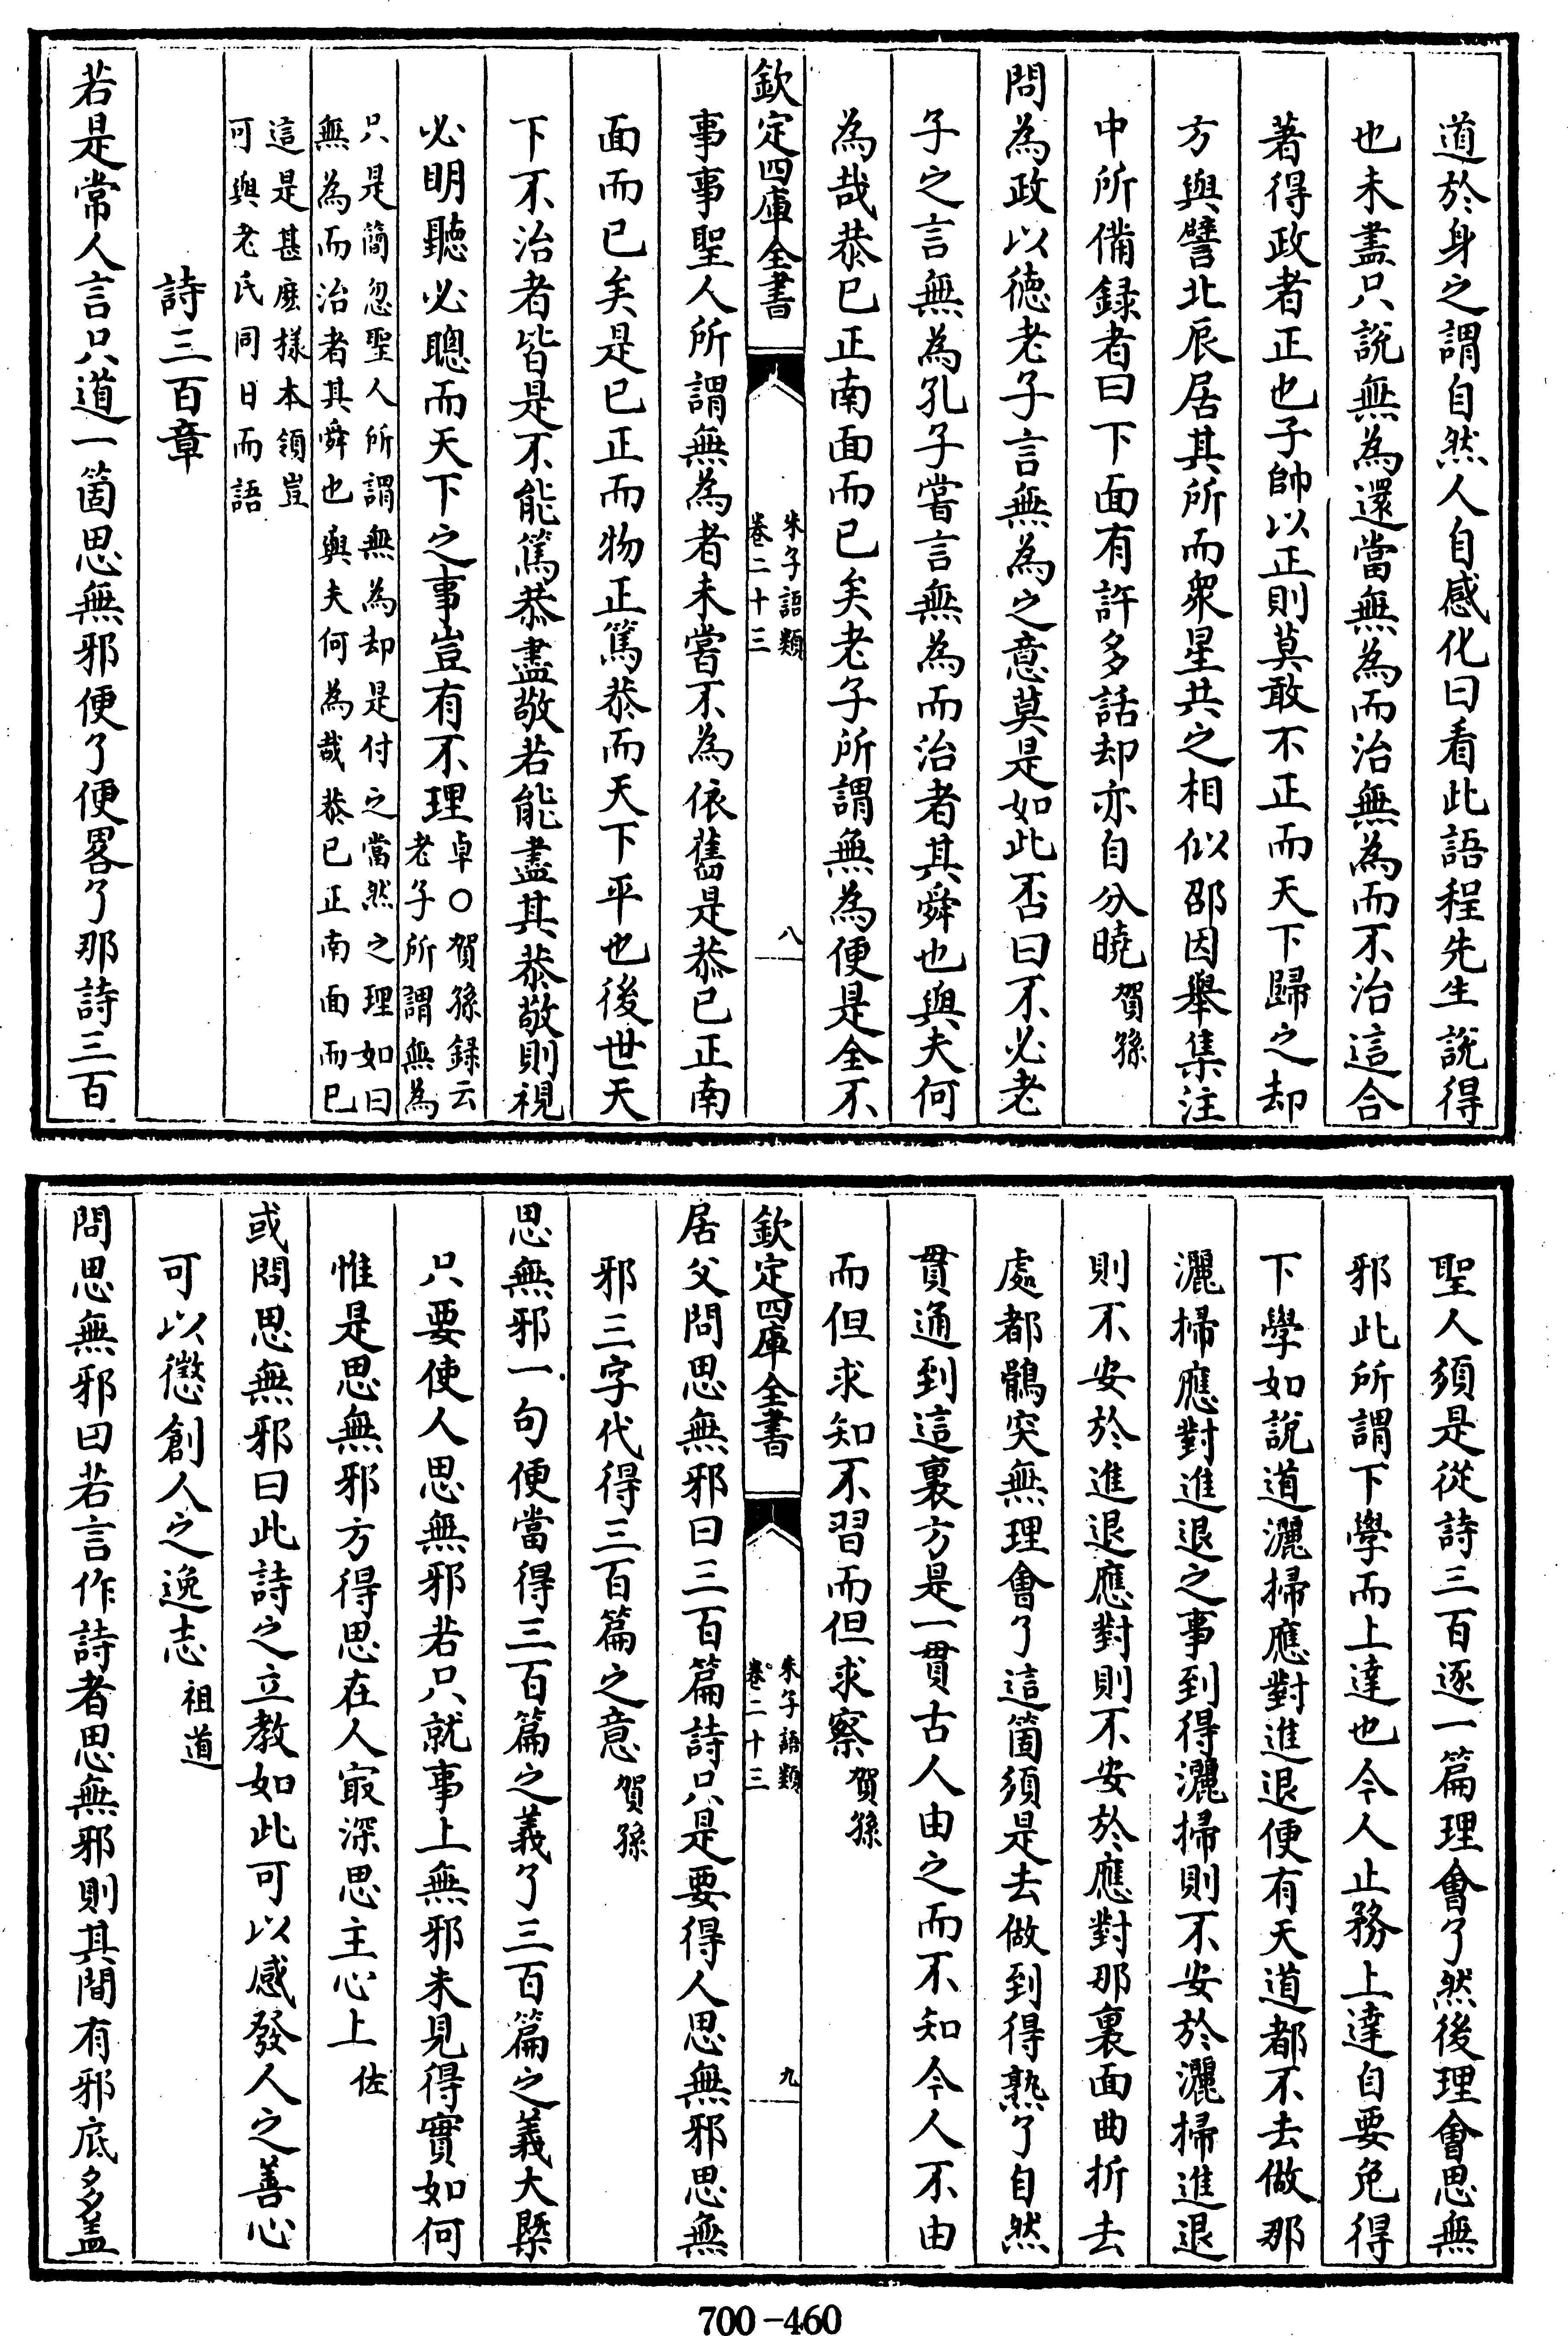 道於身之謂自然人自感化曰看此語程先生說得
也未盡只說無為還當無為而治無為而不治這合
著得政者正也子帥以正則莫敢不正而天下歸之却
方與譬北辰居其所而衆星共之相似邵因舉集注
中所備録者曰下面有許多話却亦自分曉賀孫
問為政以徳老子言無為之意莫是如此否曰不必老
子之言無為孔子嘗言無為而治者其舜也與夫何
為哉恭已正南面而已矣老子所謂無為便是全不
欽定四庫全書
朱子語類
卷二十三
八
事事聖人所謂無為者未嘗不為依舊是恭已正南
面而已矣是已正而物正篤恭而天下平也後世天
下不治者皆是不能篤恭盡敬若能盡其恭敬則視
必明聽必聰而天下之事豈有不理卓○賀孫録云
老子所謂無為
只是簡忽聖人所謂無為却是付之當然之理如曰
無為而治者其舜也與夫何為哉恭已正南面而已
這是甚麽様本領豈
可與老氏同日而語
詩三百章
若是常人言只道一箇思無邪便了便畧了那詩三百
聖人須是從詩三百逐一篇理會了然後理會思無
邪此所謂下學而上達也今人止務上達自要免得
下學如說道灑掃應對進退便有天道都不去做那
灑掃應對進退之事到得灑掃則不安於灑掃進退
則不安於進退應對則不安於應對那裏面曲折去
處都鶻突無理會了這箇須是去做到得熟了自然
貫通到這裏方是一貫古人由之而不知今人不由
而但求知不習而但求察賀孫
欽定四庫全書
朱子語類
卷二十三
九
居父問思無邪曰三百篇詩只是要得人思無邪思無
邪三字代得三百篇之意賀孫
思無邪一句便當得三百篇之義了三百篇之義大槩
只要使人思無邪若只就事上無邪未見得實如何
惟是思無邪方得思在人㝡深思主心上佐
或問思無邪曰此詩之立教如此可以感發人之善心
可以懲創人之逸志祖道
問思無邪曰若言作詩者思無邪則其間有邪底多盖
700-460